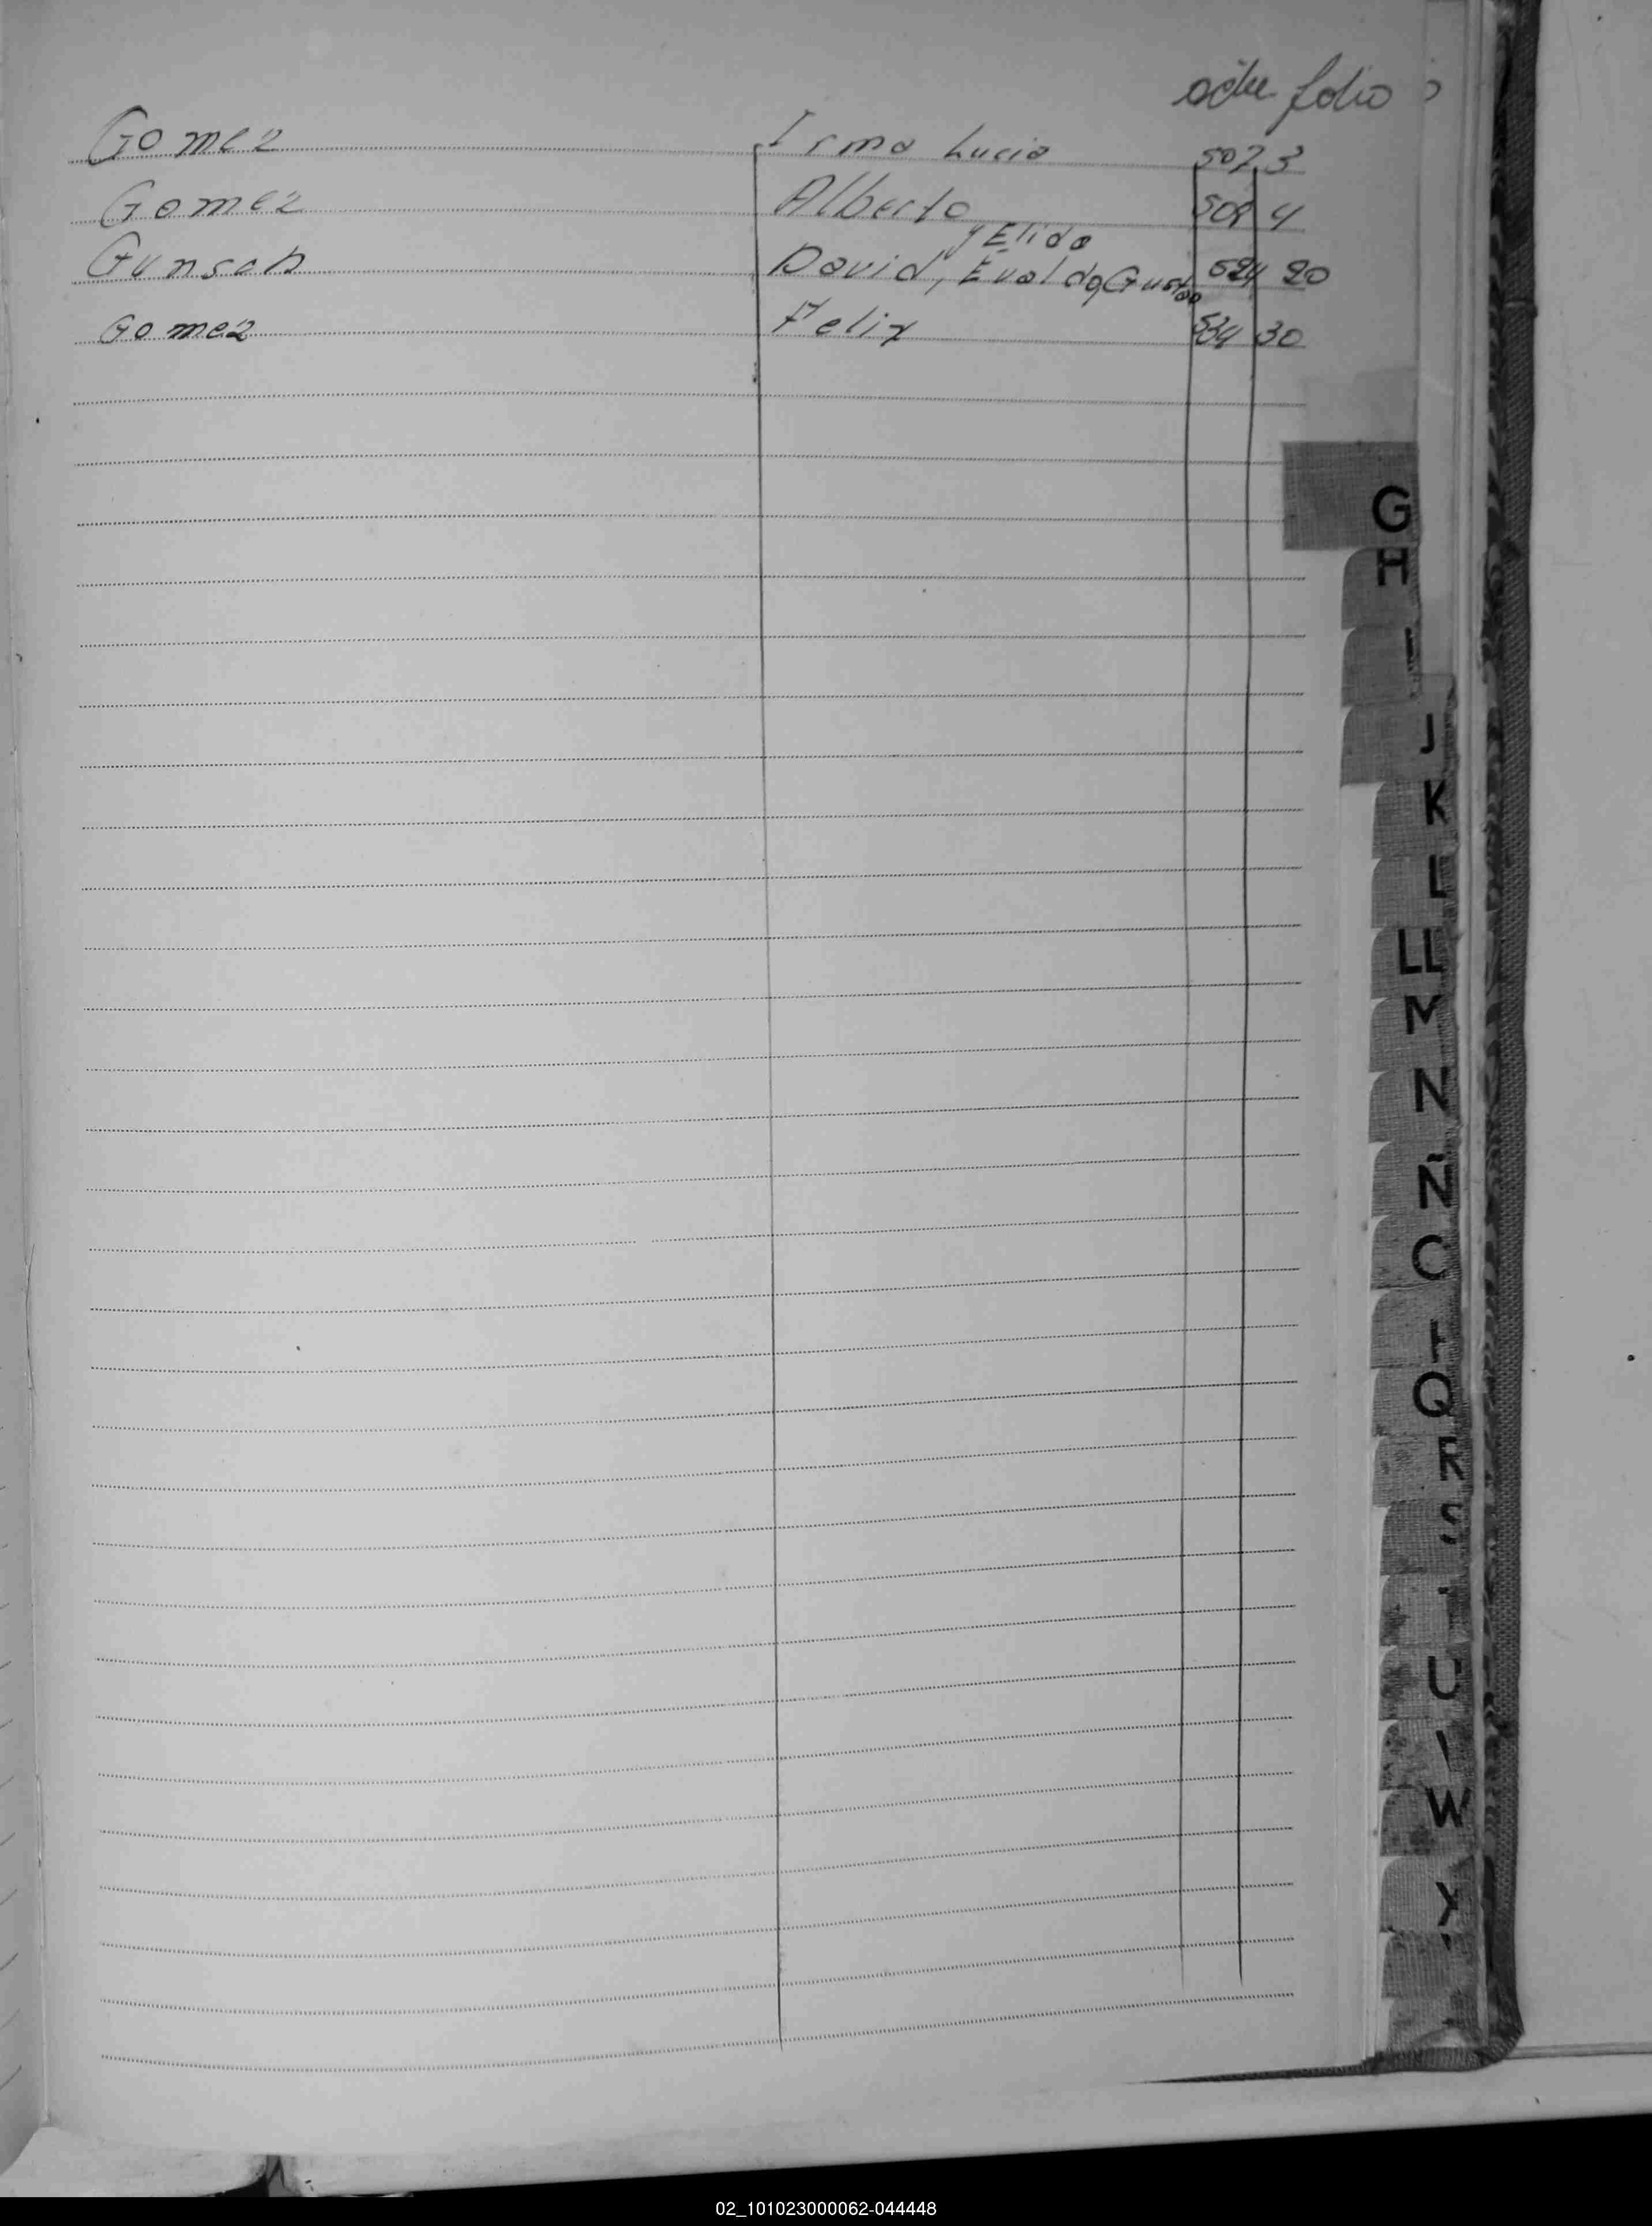 acta folio
Gomez Irma Lucia 507 3
Gomez Alberto 508 4
y Elida
Gunsch David, Evaldo, Gustavo 524 20
Gomez Felix 534 30
G
H
I
J
K
L
LL
M
N
Ñ
O
P
Q
R
S
T
U
V
W
Y
02_101023000062-044448